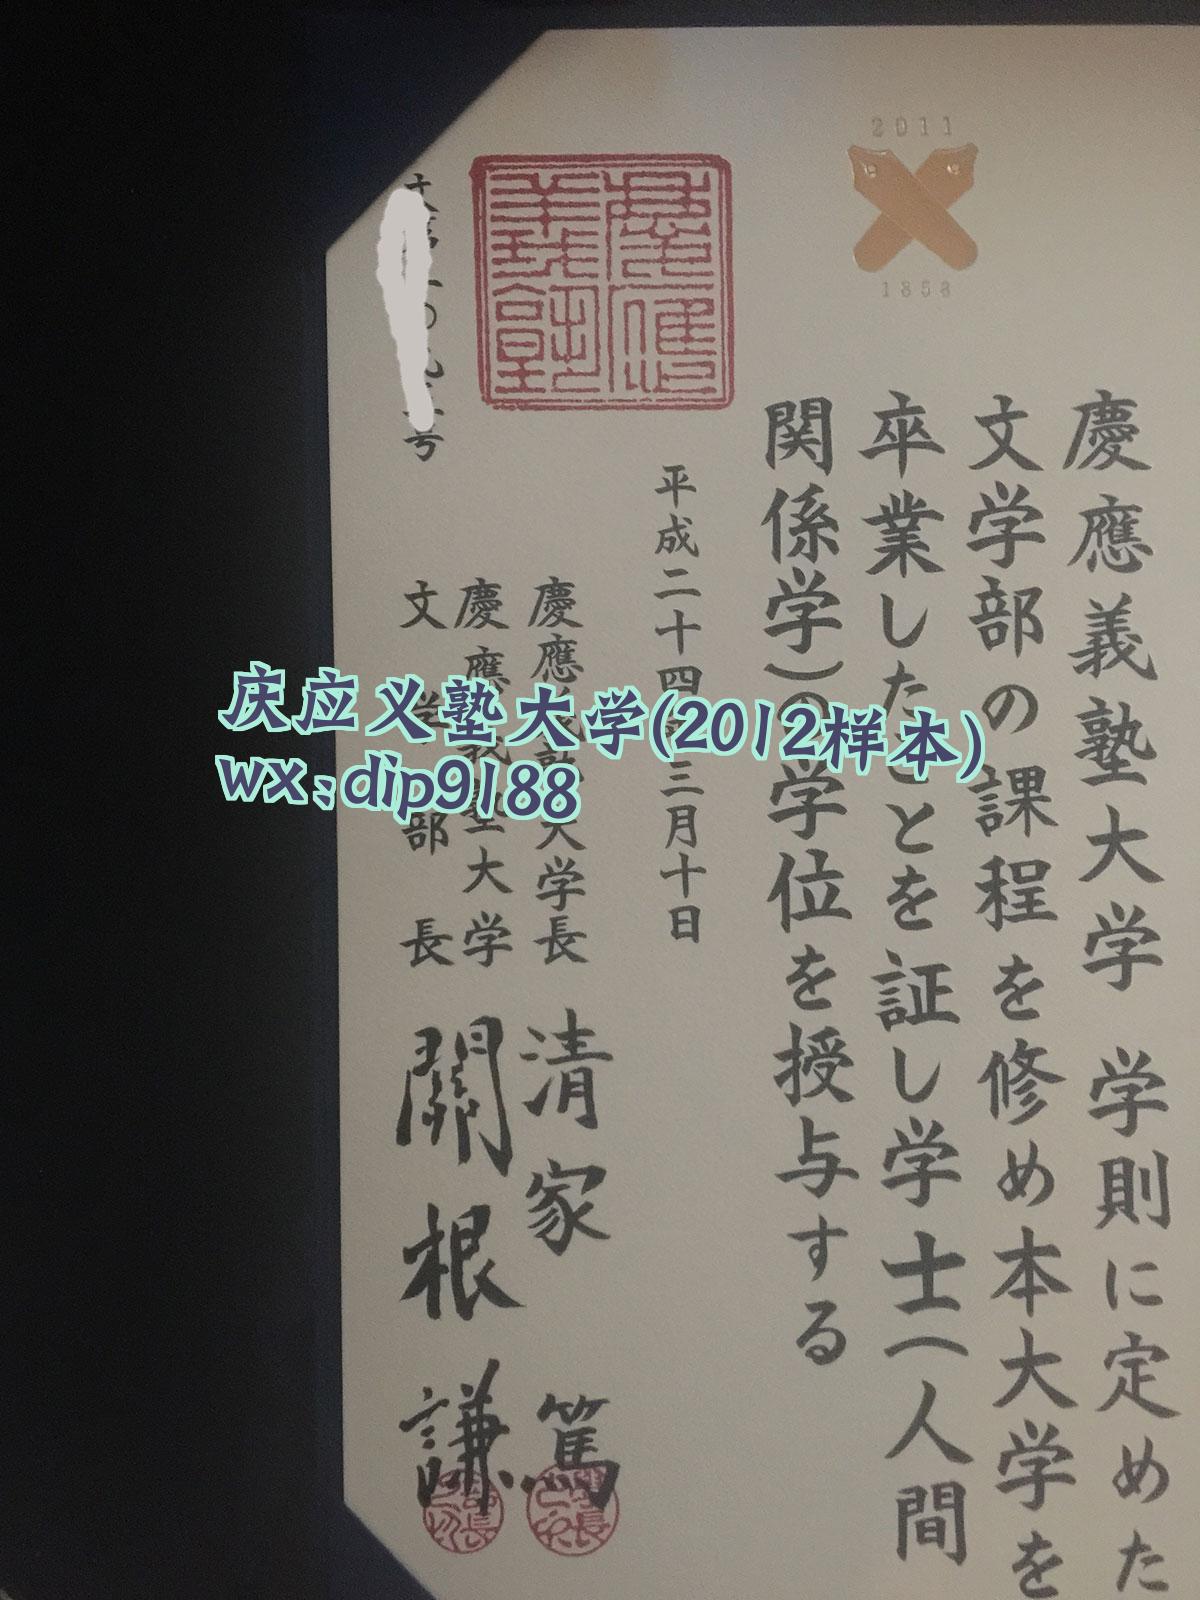 慶應義塾大学 学則に定めた
文学部の課程を修め本大学を
卒業したことを証し学士(人間
関係学)の学位を授与する
平成二十四 三月十日
慶應義塾大学長 清家 篤
慶應義塾大学
文学部長 關根 謙
号
慶應義塾
2011
1858
庆应义塾大学(2012样本)
wx:dip9188